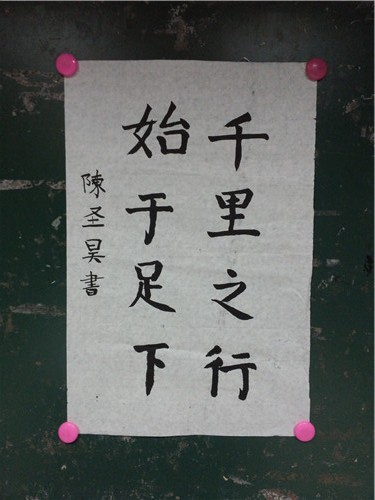 千里之行
始于足下
陳圣昊書